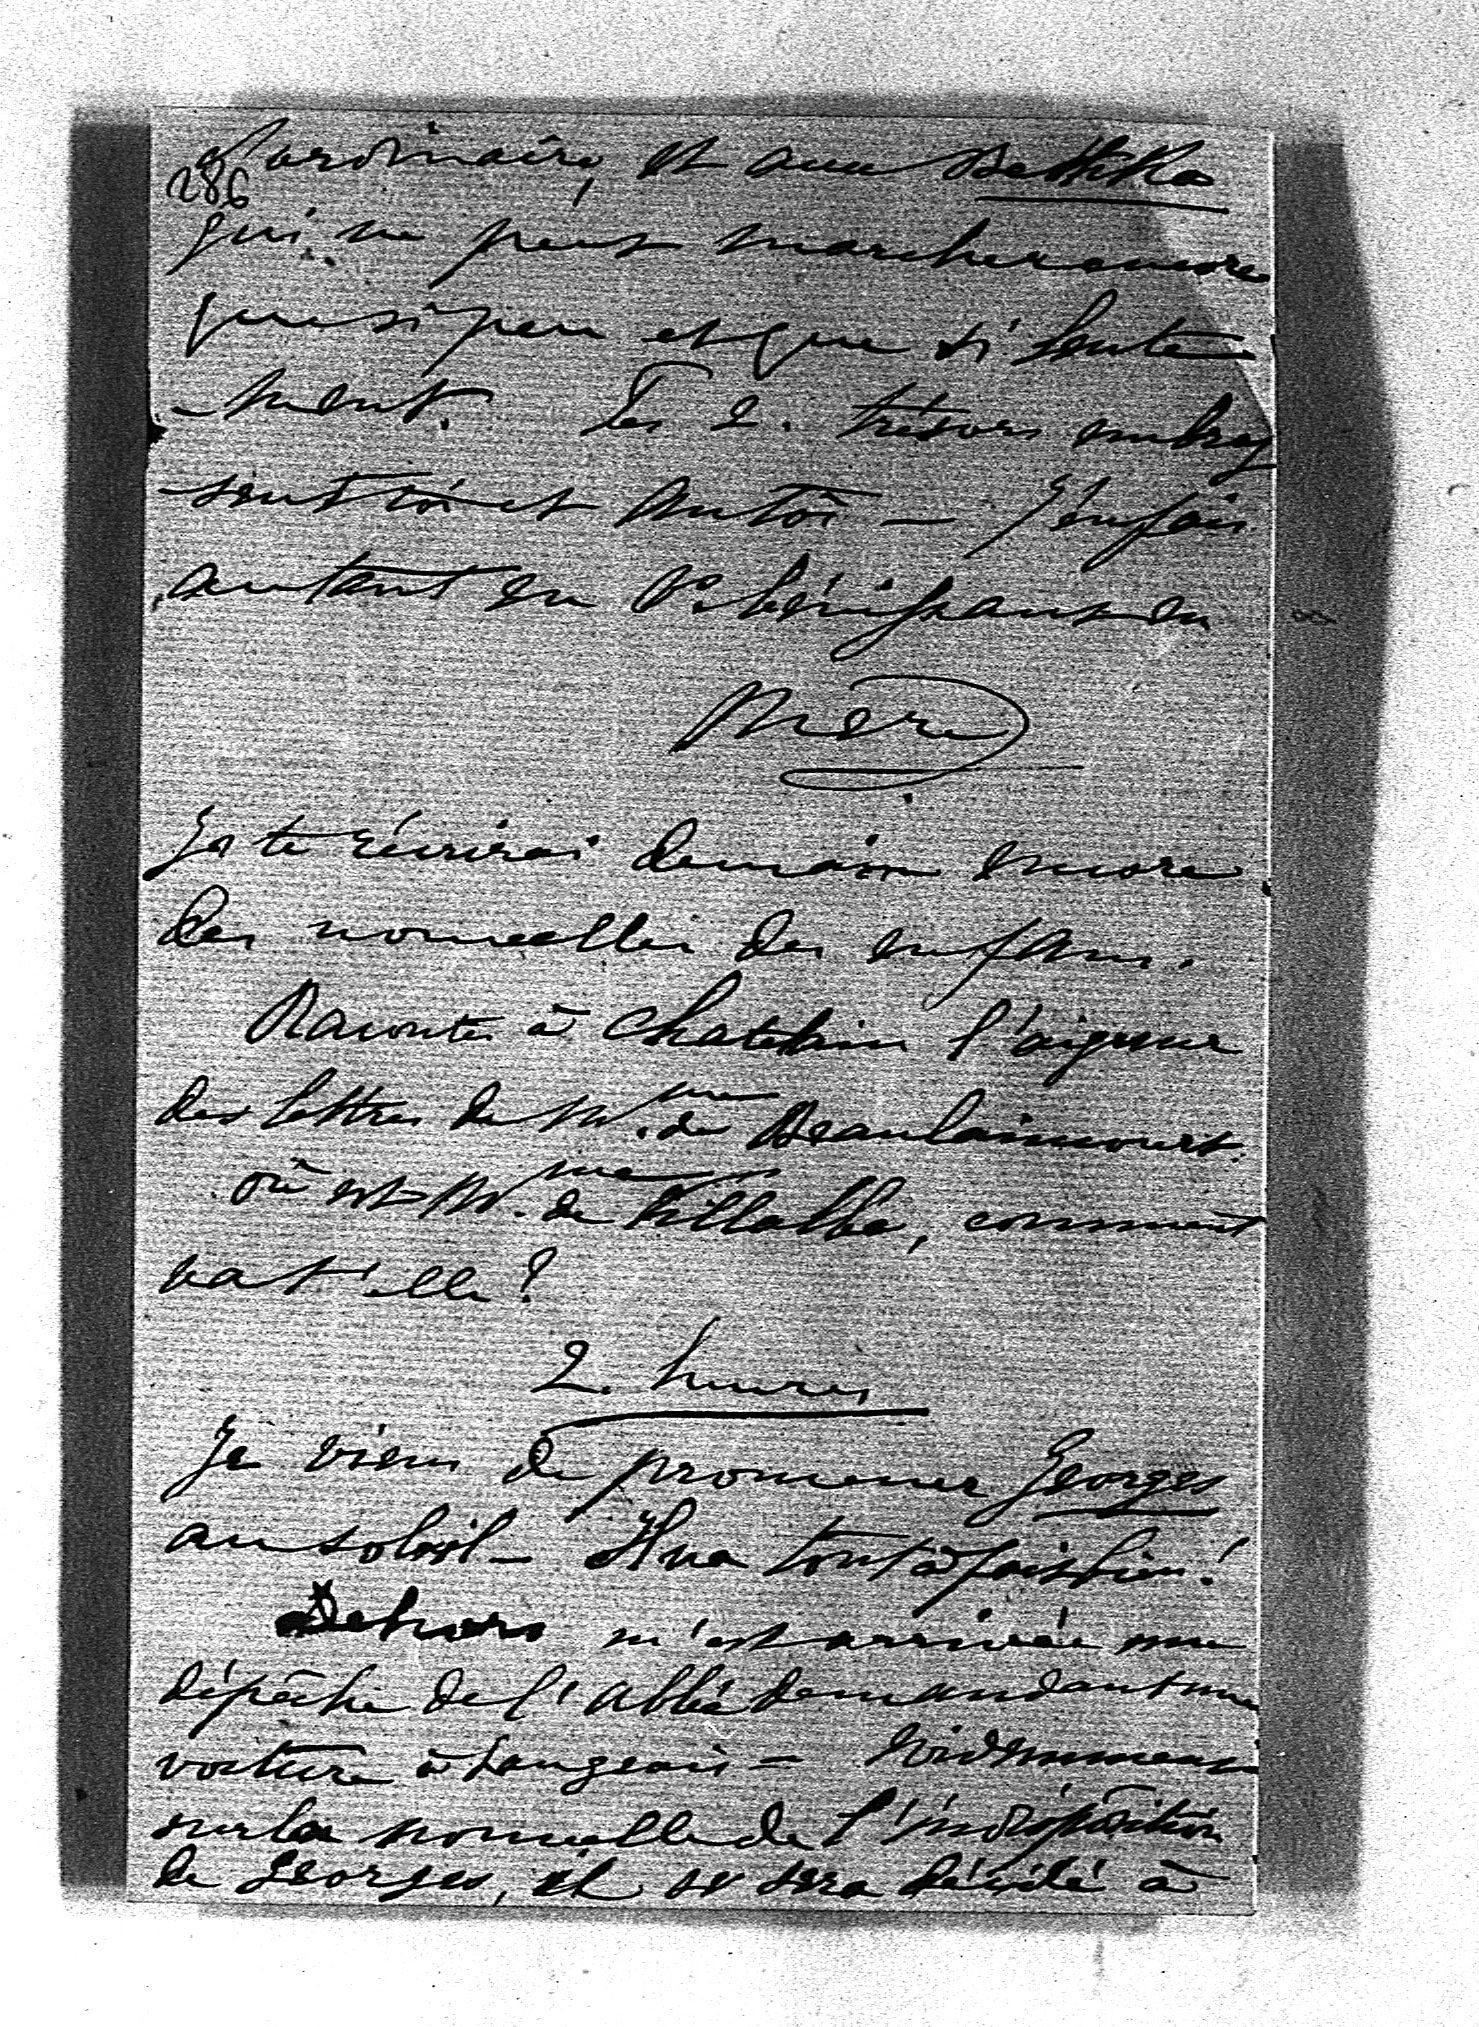 d'ordinaire, et avec
286
qui ne peut marcher encore
que si peu et que si lente
-ment. Les 2. trésors embras
-sent toi et Antoi — J'en fais
autant en Vs bénissant en
Mère
Je te récrirai demain encore
des nouvelles des enfans.
Racontes à Chatelain l'aigreur
des lettres de Mme de Beaulaincourt.
où est Mme de Villalba, comment
va t'elle?
2. heures
Je viens de promener Georges
au soleil — Il va tout à fait bien!
Dehors m'est arrivée une
dépêche de l'abbé demandant une
voiture à Langeais —
sur la nouvelle de l'indisposition
de Georges, il se sera décidé à